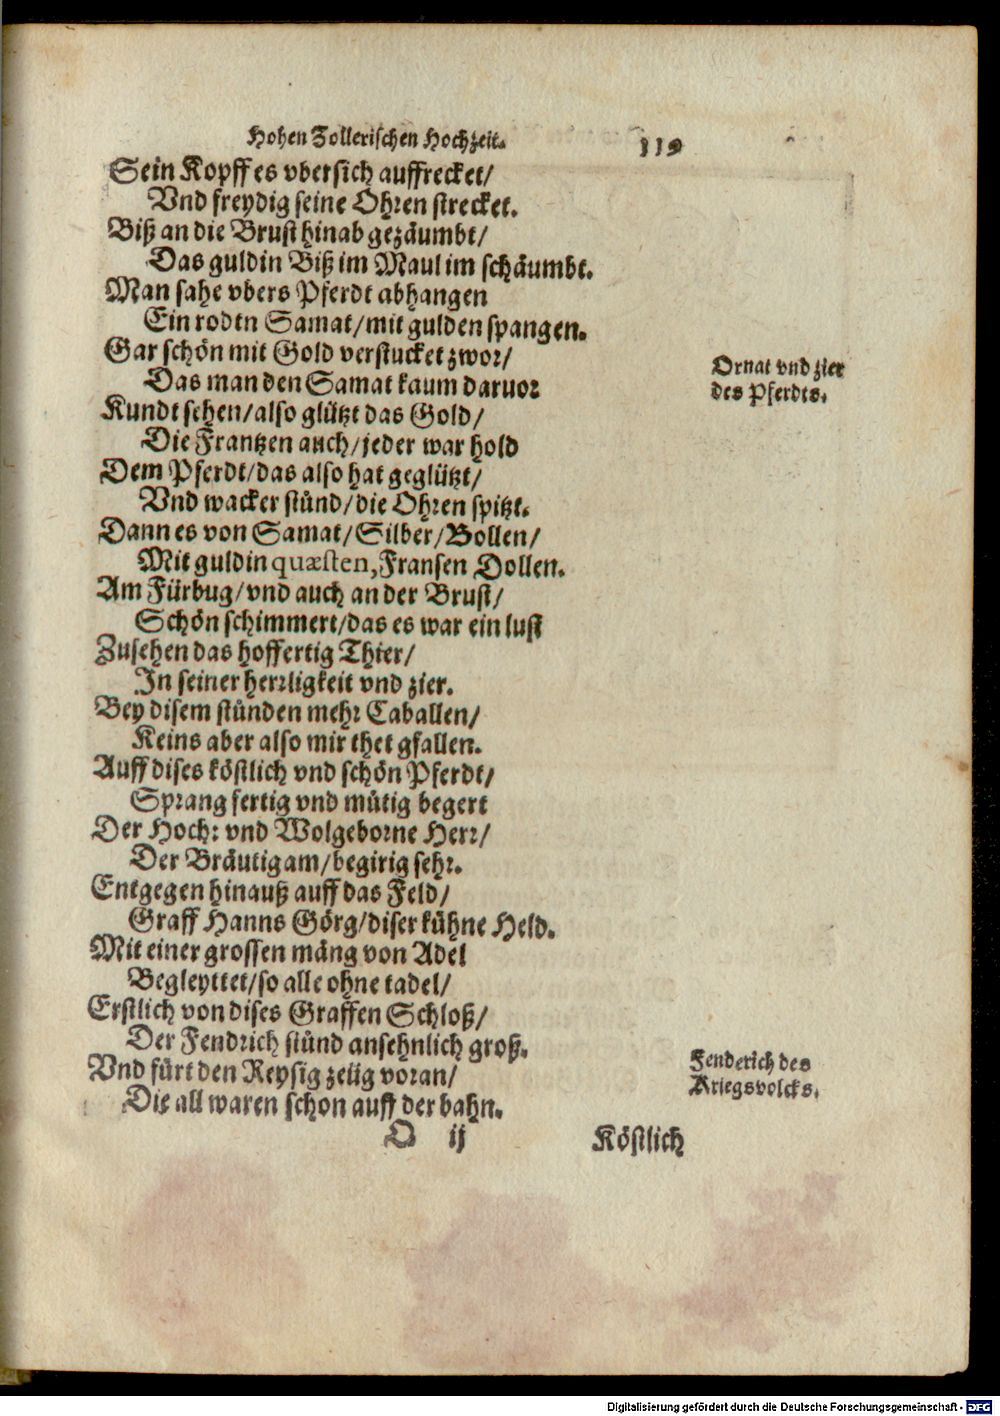 Hohen Zollerischen Hochzeit. 119
Sein Kopff es vbersich auffrecket/
Vnd freydig seine Ohren strecket.
Biß an die Brust hinab gezäumbt/
Das guldin Biß im Maul im schäumbt.
Man sahe vbers Pferdt abhangen
Ein rodtn Samat/mit gulden spangen.
Gar schön mit Gold verstucket zwor/
Ornat vnd zier
des Pferdts.
Das man den Samat kaum daruor
Kundt sehen/also glützt das Gold/
Die Frantzen auch/jeder war hold
Dem Pferdt/das also hat geglützt/
Vnd wacker stünd/die Ohren spitzt.
Dann es von Samat/Silber/Bollen/
Mit guldin quæsten, Fransen Dollen.
Am Fürbug/vnd auch an der Brust/
Schön schimmert/das es war ein lust
Zusehen das hoffertig Thier/
In seiner herrligkeit vnd zier.
Bey disem stünden mehr Caballen/
Keins aber also mir thet gfallen.
Auff dises köstlich vnd schön Pferdt/
Sprang fertig vnd mütig begert
Der Hoch: vnd Wolgeborne Herr/
Der Bräutigam/begirig sehr.
Entgegen hinauß auff das Feld/
Graff Hanns Görg/diser kühne Held.
Mit einer grossen mäng von Adel
Begleyttet/so alle ohne tadel/
Erstlich von dises Graffen Schloß/
Der Fendrich stünd ansehnlich groß.
Fenderich des
Kriegsvolcks.
Vnd fürt den Reysig zelig voran/
Die all waren schon auff der bahn.
O ij Köstlich
Digitalisierung gefördert durch die Deutsche Forschungsgemeinschaft - DFG